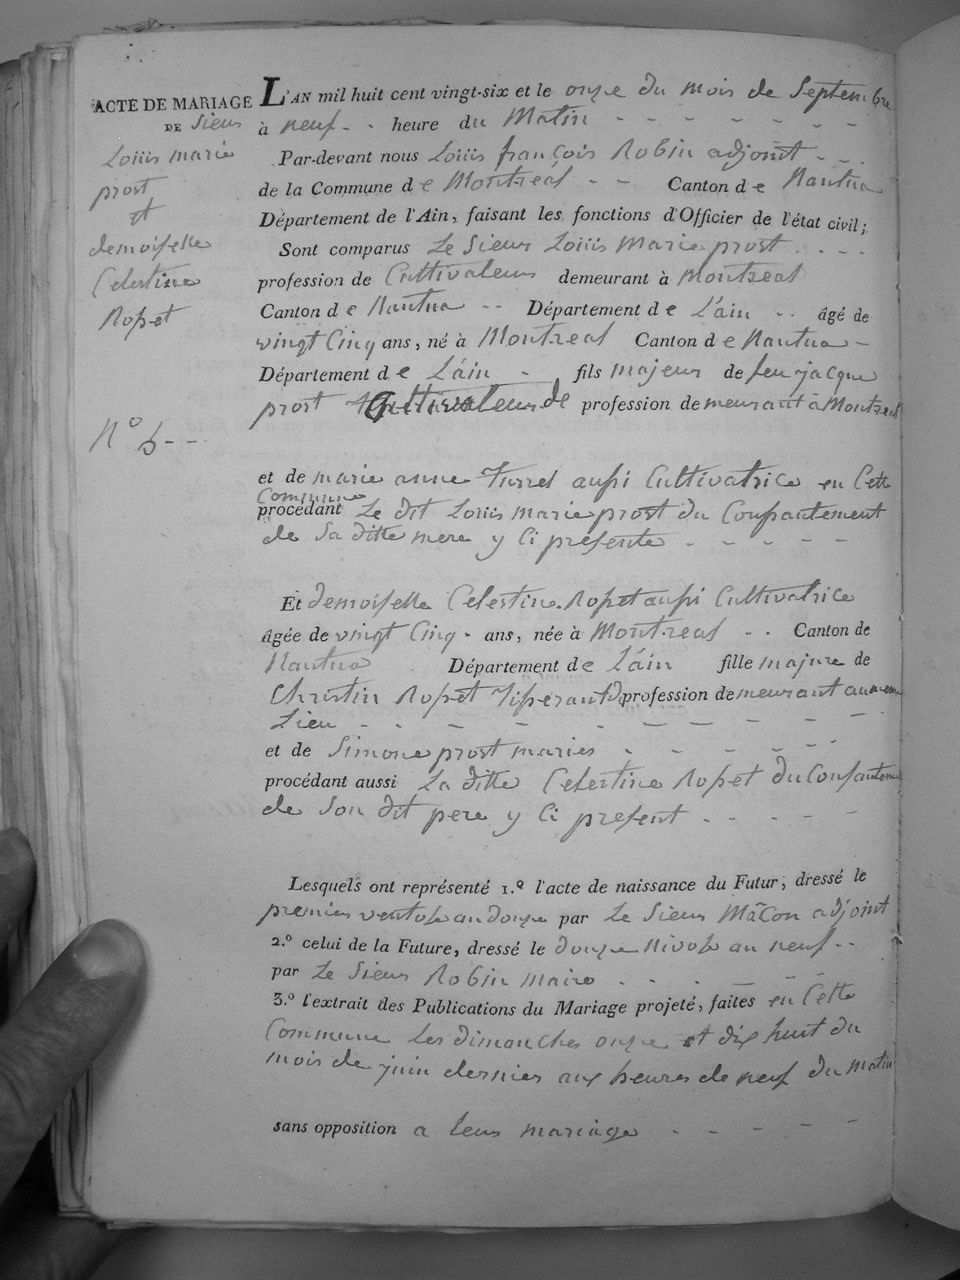 ACTE DE MARIAGE
DE Sieur
Louis marie
prost
et
demoiselle
Celestine
Ropet
N° 5--
L'AN mil huit cent vingt-six et le onze du mois de Septembre
à neuf - - heure du Matin - - - - - - -
Par-devant nous Louis françois Robin adjoint - - -
de la Commune de Montreal - - Canton de Nantua
Département de l'Ain, faisant les fonctions d'Officier de l'état civil;
Sont comparus Le Sieur Louis Marie prost - - - -
profession de Cultivateur demeurant à Montreal
Canton de Nantua -- Département de L'ain -- âgé de
vingt Cinq ans, né à Montreal Canton de Nantua -
Département de L'ain - fils majeur de feu jacque
prost Cultivateur de profession demeurant à Montreal
et de marie anne Turrel aussi Cultivatrice en Cette
Commune
procédant Le dit Louis marie prost du Consantement
de Sa ditte mere y Ci présente - - - - -
Et demoiselle Celestine Ropet aussi Cultivatrice
âgée de vingt Cinq - ans, née à Montreal - - Canton de
Nantua Département de L'ain fille majure de
Christin Ropet Tisserant de profession demeurant au meme
Lieu - - - - - - - - - -
et de Simone prost maries - - - - - -
procédant aussi La ditte Celestine Ropet du Consantement
de Son dit pere y Ci present - - - - -
Lesquels ont représenté 1.º l'acte de naissance du Futur, dressé le
premier ventose an douze par Le Sieur Mâcon adjoint
2.º celui de la Future, dressé le douze Nivose an neuf --
par Le Sieur Robin maire - - - - -
3.º l'extrait des Publications du Mariage projeté, faites en Cette
Commune Les dimanches onze et dix huit du
mois de juin dernier aux heures de neuf du matin
sans opposition a leur mariage - - - - -